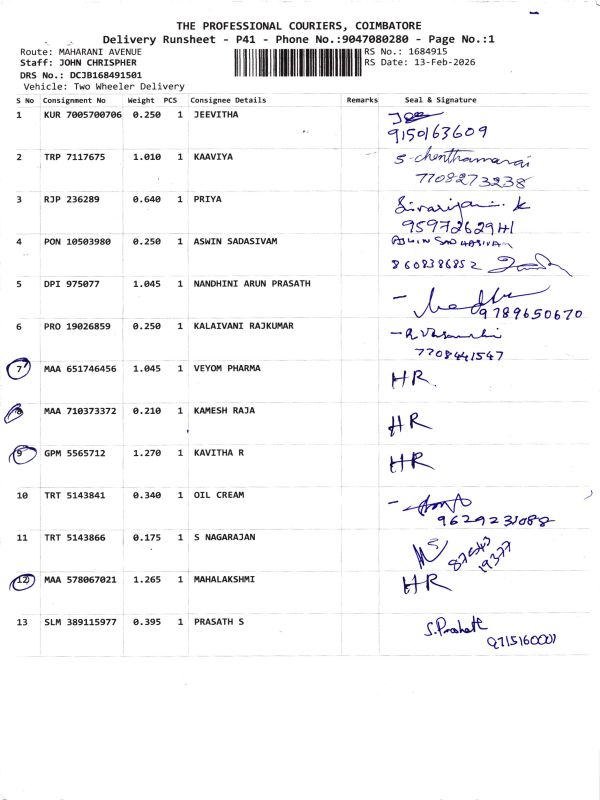 THE PROFESSIONAL COURIERS, COIMBATORE
Delivery Runsheet - P41 - Phone No.:9047080280 - Page No.:1
Route: MAHARANI AVENUE RS No.: 1684915
Staff: JOHN CHRISPHER RS Date: 13-Feb-2026
DRS No.: DCJB168491501
Vehicle: Two Wheeler Delivery
S No Consignment No Weight PCS Consignee Details Remarks Seal & Signature
1 KUR 7005700706 0.250 1 JEEVITHA
9150163609
2 TRP 7117675 1.010 1 KAAVIYA S. chenthamarai
7708273238
3 RJP 236289 0.640 1 PRIYA
4 PON 10503980 0.250 1 ASWIN SADASIVAM ASWIN SADHASIVAM
8608386852
5 DPI 975077 1.045 1 NANDHINI ARUN PRASATH
9789650670
6 PRO 19026859 0.250 1 KALAIVANI RAJKUMAR
7708441547
7 MAA 651746456 1.045 1 VEYOM PHARMA HR.
8 MAA 710373372 0.210 1 KAMESH RAJA HR
9 GPM 5565712 1.270 1 KAVITHA R HR
10 TRT 5143841 0.340 1 OIL CREAM
11 TRT 5143866 0.175 1 S NAGARAJAN
12 MAA 578067021 1.265 1 MAHALAKSHMI HR
13 SLM 389115977 0.395 1 PRASATH S S. Prashath
9715160001